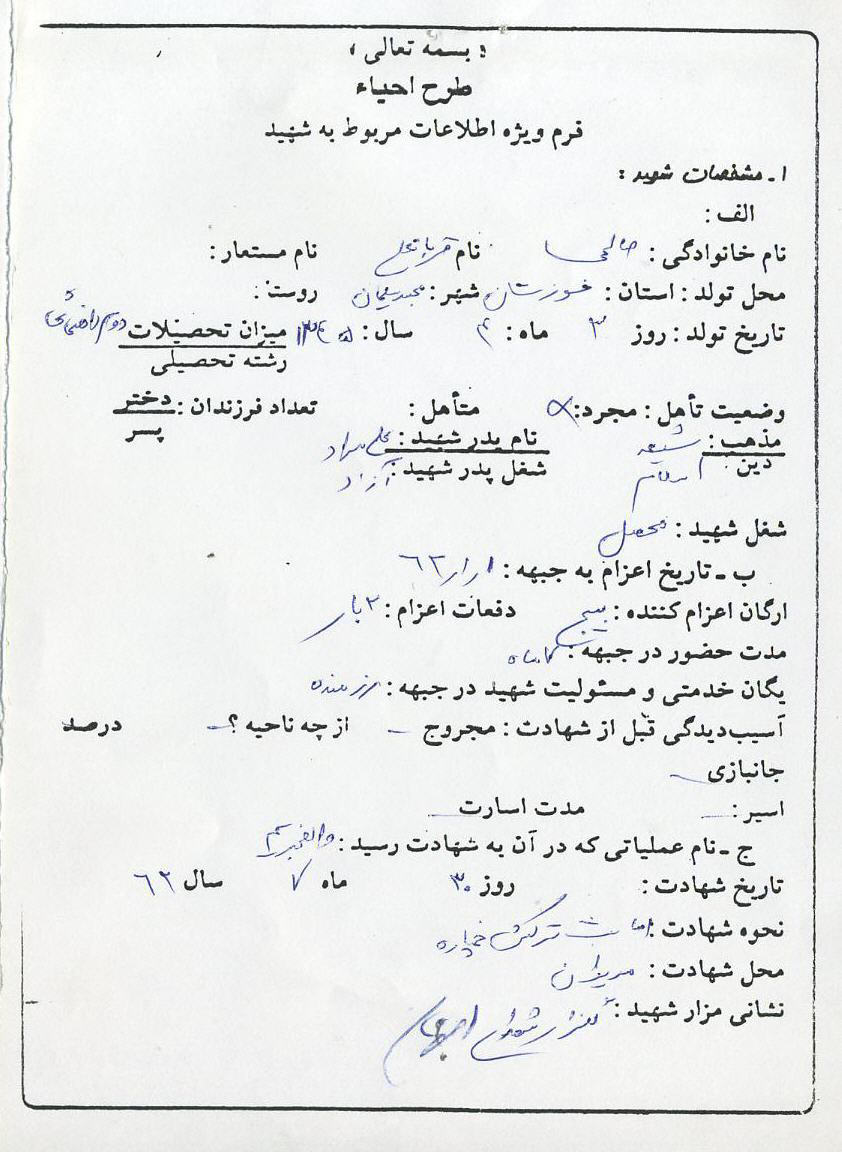 « بسمه تعالی »
طرح احیاء
فرم ویژه اطلاعات مربوط به شهید
۱ـ مشخصات شهید :
الف :
نام خانوادگی : صالحی نام قربانعلی نام مستعار :
محل تولد : استان : خوزستان شهر : مسجدسلیمان روستا :
تاریخ تولد : روز ۳ ماه : ۴ سال : ۱۳۴۵ میزان تحصیلات دوم راهنمائی
رشته تحصیلی
وضعیت تأهل : مجرد : متأهل : تعداد فرزندان : دختر
پسر
مذهب : شیعه نام پدر شهید : علیمراد
دین : اسلام شغل پدر شهید : آزاد
شغل شهید : محصل
ب ـ تاریخ اعزام به جبهه : ۶۲/۱/۱
ارگان اعزام کننده : بسیج دفعات اعزام : ۲ بار
مدت حضور در جبهه : ماه
یگان خدمتی و مسئولیت شهید در جبهه : رزمنده
آسیب‌دیدگی قبل از شهادت : مجروح ـ از چه ناحیه ؟ ـ درصد
جانبازی ـ
اسیر : ـ مدت اسارت ـ
ج ـ نام عملیاتی که در آن به شهادت رسید : والفجر ۴
تاریخ شهادت : روز ۳۰ ماه ۷ سال ۶۲
نحوه شهادت : اصابت ترکش خمپاره
محل شهادت : مریوان
نشانی مزار شهید : گلزار شهدای اصفهان